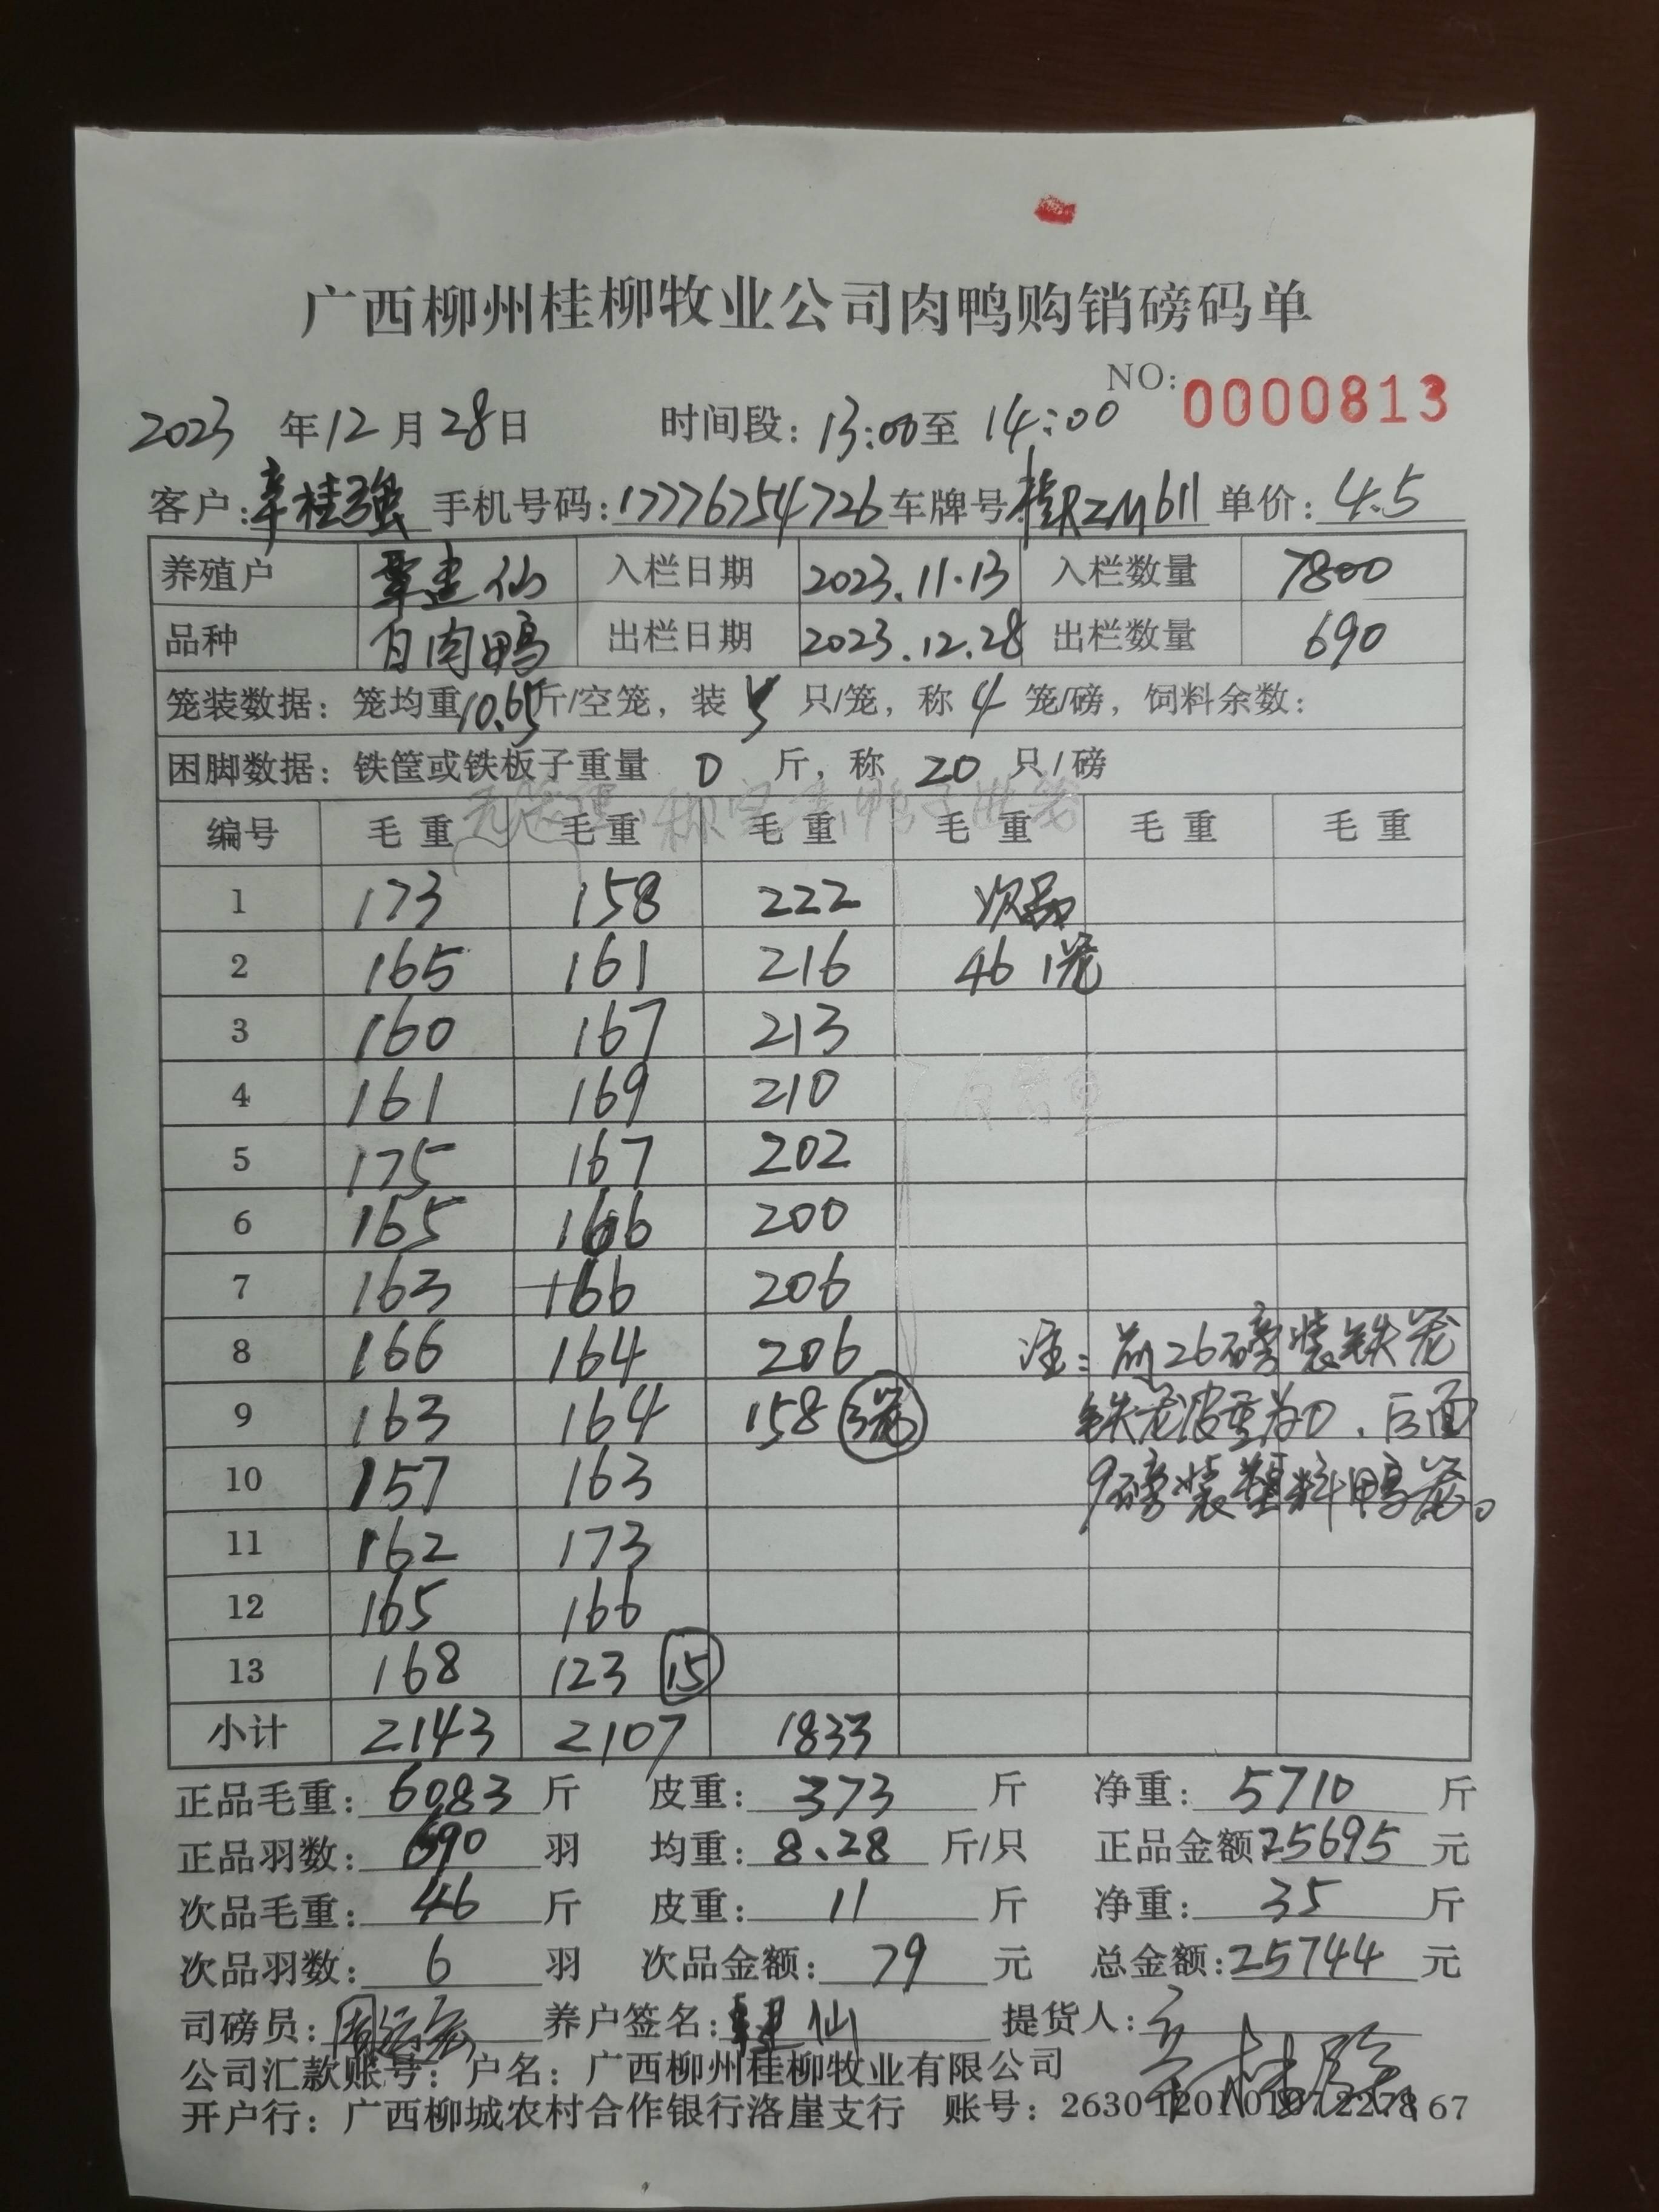 广西柳州桂柳牧业公司肉鸭购销磅码单
NO: 0000813
2023 年 12 月 28 日 时间段: 13:00 至 14:00
客户: 辛桂强 手机号码: 17776754726 车牌号 桂RZM611 单价: 4.5
养殖户 覃建仙 入栏日期 2023.11.13 入栏数量 7800
品种 白肉鸭 出栏日期 2023.12.28 出栏数量 690
笼装数据: 笼均重 10.65 斤/空笼, 装 5 只/笼, 称 4 笼/磅, 饲料余数:
困脚数据: 铁筐或铁板子重量 0 斤, 称 20 只/磅
编号 毛重 毛重 毛重 毛重 毛重 毛重
1 173 158 222 次品
2 165 161 216 46 1笼
3 160 167 213
4 161 169 210
5 175 167 202
6 165 166 200
7 163 166 206
8 166 164 206 注: 前26磅装铁笼
9 163 164 158 3笼 铁笼皮重为0, 后面
10 157 163 9磅装塑料鸭笼。
11 162 173
12 165 166
13 168 123 15
小计 2143 2107 1833
正品毛重: 6083 斤 皮重: 373 斤 净重: 5710 斤
正品羽数: 690 羽 均重: 8.28 斤/只 正品金额: 25695 元
次品毛重: 46 斤 皮重: 11 斤 净重: 35 斤
次品羽数: 6 羽 次品金额: 79 元 总金额: 25744 元
司磅员: 养户签名: 覃建仙 提货人: 辛桂强
公司汇款账号: 户名: 广西柳州桂柳牧业有限公司
开户行: 广西柳城农村合作银行洛崖支行 账号: